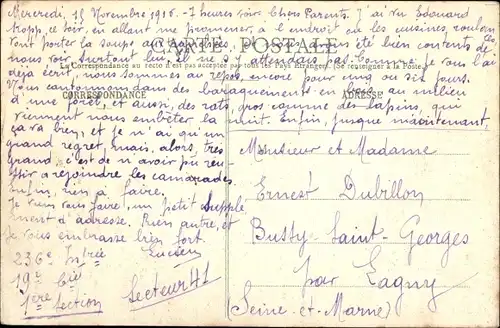 Mercredi, 15 Novembre 1916. - 7 heures soir. Chers Parents. J'ai vu Edouard
ce soir, en allant me promener, à l'endroit où les cuisines
vont porter la soupe aux
été bien contents de
nous voir. Surtout lui, il ne s'attendais pas. Comme je vous l'ai
déjà écrit, nous sommes au repos, encore pour cinq ou six jours.
Nous cantonnons dans des baraquements en au milieu
d'une forêt, et aussi, des rats, gros comme des lapins, qui
viennent nous embêter la nuit. Enfin, jusque maintenant,
ça va bien, et je n'ai qu'un
grand regret, mais, alors, très
grand, c'est de n'avoir pu réu-
ssir à rejoindre les camarades
Enfin, rien à faire.
Je vais vous faire, un petit supplé
ment d'adresse. Rien autre, et
je vous embrasse bien fort.
Lucien
236e
19e Cie
1ère Section
Secteur 41
CARTE POSTALE
La Correspondance au recto n'est pas acceptée par tous les pays étrangers. (Se renseigner à la Poste)
CORRESPONDANCE
ADRESSE
Monsieur et Madame
Ernest Dubillon
Bussy-Saint-Georges
par Lagny
(Seine-et-Marne)